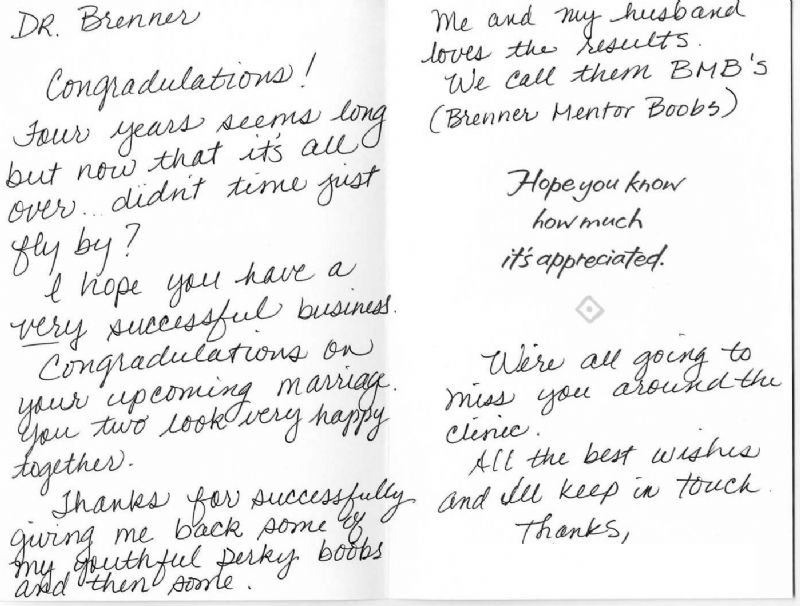 DR. Brenner
Congradulations!
Four years seems long
but now that it's all
over... didn't time just
fly by?
I hope you have a
very successful business.
Congradulations on
your upcoming marriage.
You two look very happy
together.
Thanks for successfully
giving me back some of
my youthful perky boobs
and then some.
Me and my husband
loves the results.
We call them BMB's
(Brenner Mentor Boobs)
Hope you know
how much
it's appreciated.
We're all going to
miss you around the
clinic.
All the best wishes
and I'll keep in touch.
Thanks,